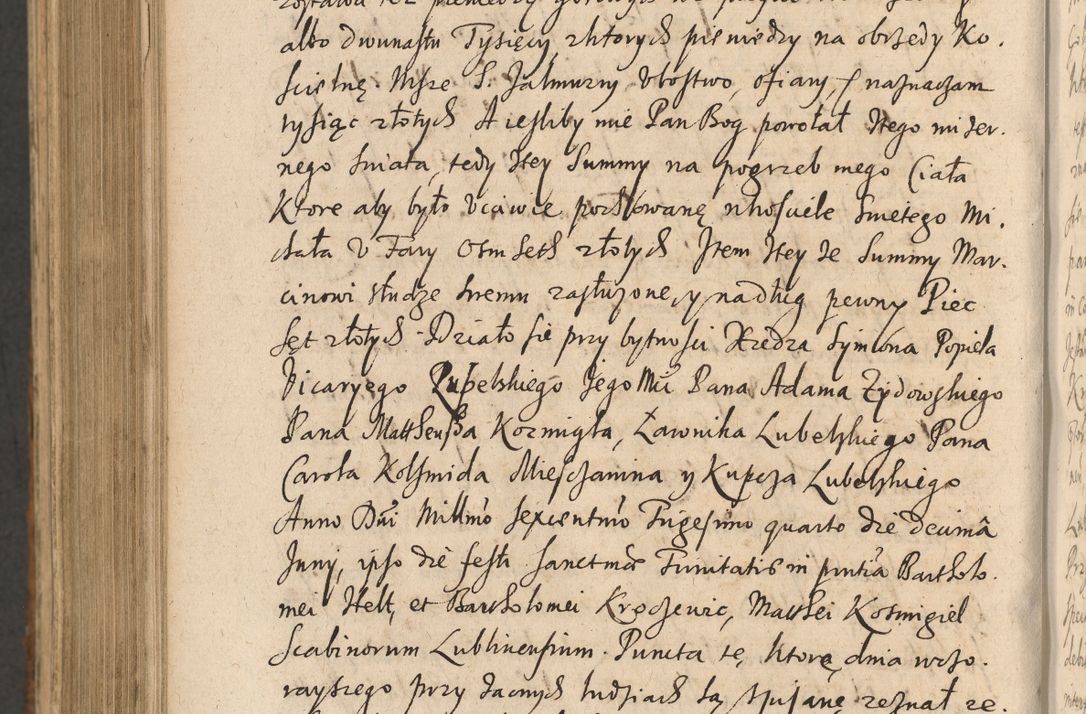 albo dwunastu Tysięcy zktorych pieniedzy na obrzędy Ko.
scielnę. Msze S. Jałmuzny Vbostwo, ofiary, naznaczam
tysiąc złotych A iesliby mie Pan Bog powołał Ztego mizer.
nego swiata, tedy Ztey Summy na pogrzeb mego Ciała
Ktore aby było Vczciwie pochowanę wkosciele Swietego Mi.
chała V Fary Osm Seth złotych Item Ztey ze Summy Mar.
cinowi słudze swemu zasłuzone, y na dług pewny Piec
Set złotych Działo sie przy bytnosci Xiedza Symona Popiela
Vicaryego Lubelskiego Jego Mci Pana Adama Zydowskiego
Pana Mattheusza Kozmigła, Ławnika Lubelskiego Pana
Carola Kolsmida Miesczanina y Kupcza Lubelskiego
Anno Dni Millmo sexcentmo Trigesimo quarto die decima
Juny, ipso die festi sanctmae Trinitatis in pntia Bartholo.
mei Helt, et Bartholomei Kroczewic, Matthei Kosmigiel
Scabinorum Lublinensium. Puncta te, ktore dnia wczo.
rayszego przy zacnych ludziach są spisanę zeznał ze.